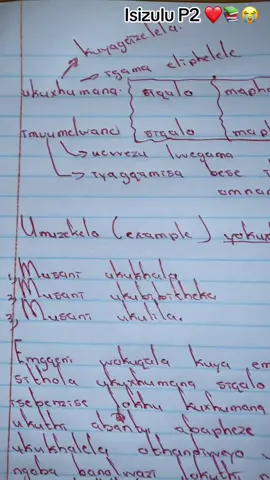 Isizulu P2 ❤️📚😭
kuyagcizelela.
igama eliphelele
ukuxhumana. siqalo maph
imvumelwano siqalo map
→ uchezu lwegama
→ iyagqamisa bese
Umuzekelo (example) yokux
1, Musani ukukhala
2, Musani ukubhitheka
3, Musani ukulila.
Emgqeni wokuqala kuya em
sithola ukuxhumana siqalo
isebenzise lokhu kuxhumana
ukuthi abantu abapheze
ukukhalela othandiweyo
ngoba banolwazi lokuthi n